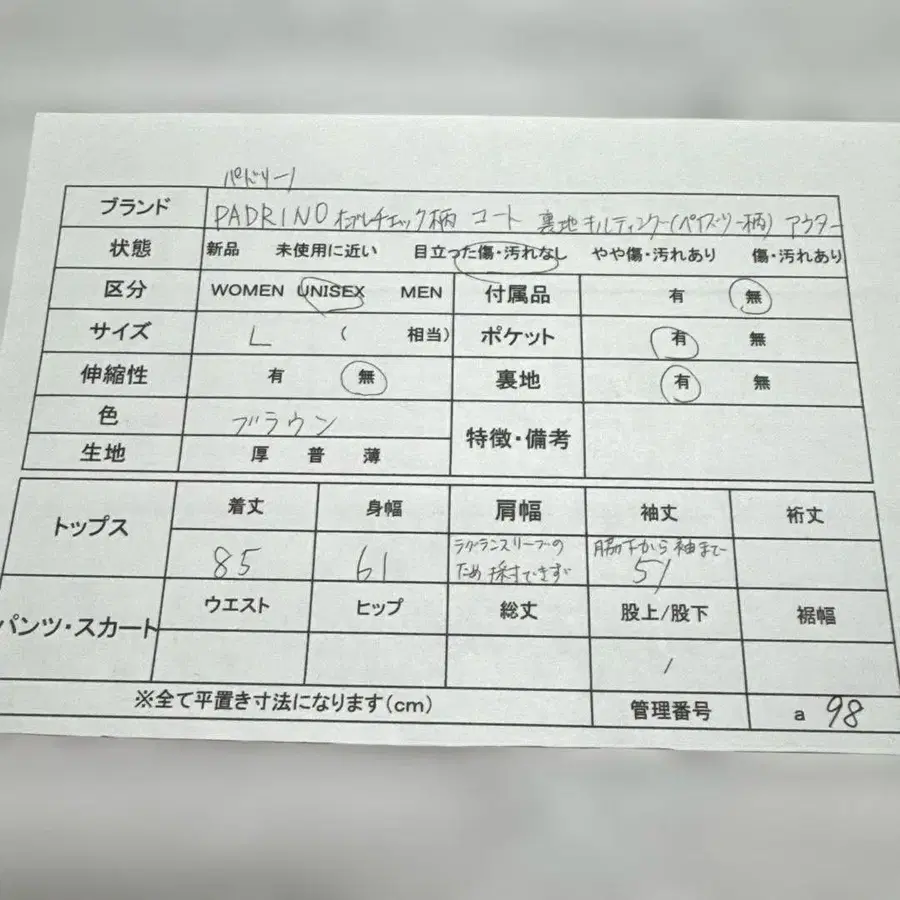 パドリーノ
ブランド PADRINO オンブレチェック柄 コート 裏地キルティング(ペイズリー柄) アウター
状態 新品 未使用に近い 目立った傷・汚れなし やや傷・汚れあり 傷・汚れあり
区分 WOMEN UNISEX MEN 付属品 有 無
サイズ L ( 相当) ポケット 有 無
伸縮性 有 無 裏地 有 無
色 ブラウン 特徴・備考
生地 厚 普 薄
トップス 着丈 身幅 肩幅 袖丈 裄丈
85 61 ラグランスリーブの 脇下から袖まで
ため採寸できず 51
パンツ・スカート ウエスト ヒップ 総丈 股上/股下 裾幅
/
※全て平置き寸法になります(cm) 管理番号 a 98